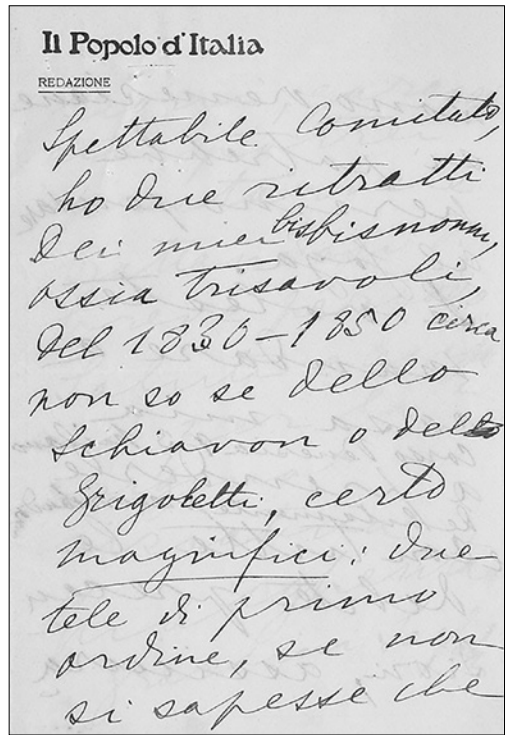 Il Popolo d'Italia
REDAZIONE
Spettabile Comitato,
ho due ritratti
dei miei bisbisnonni,
ossia trisavoli,
del 1830-1850 circa
non so se dello
Schiavon o dello
Grigoletti, certo
magnifici: due
tele di primo
ordine, se non
si sapesse che